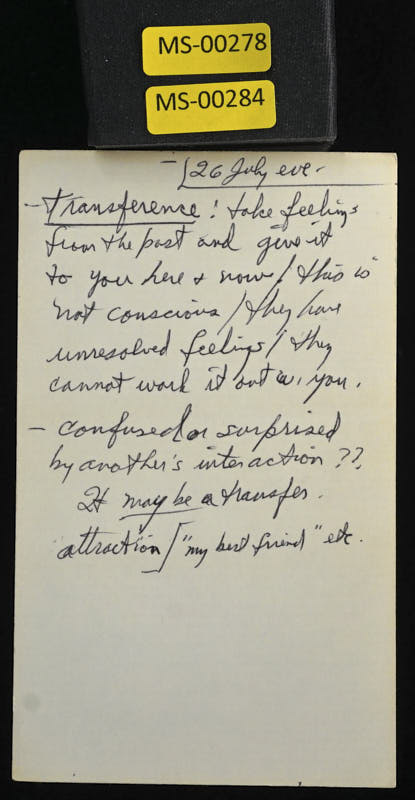 MS-00278
MS-00284
- 26 July eve.
- Transference! take feelings
from the past and give it
to you here & now! this is
not conscious / they have
unresolved feelings / they
cannot work it out w. you.
- confused or surprised
by another's interaction ??
It may be a transfer.
attraction / "my best friend" etc.